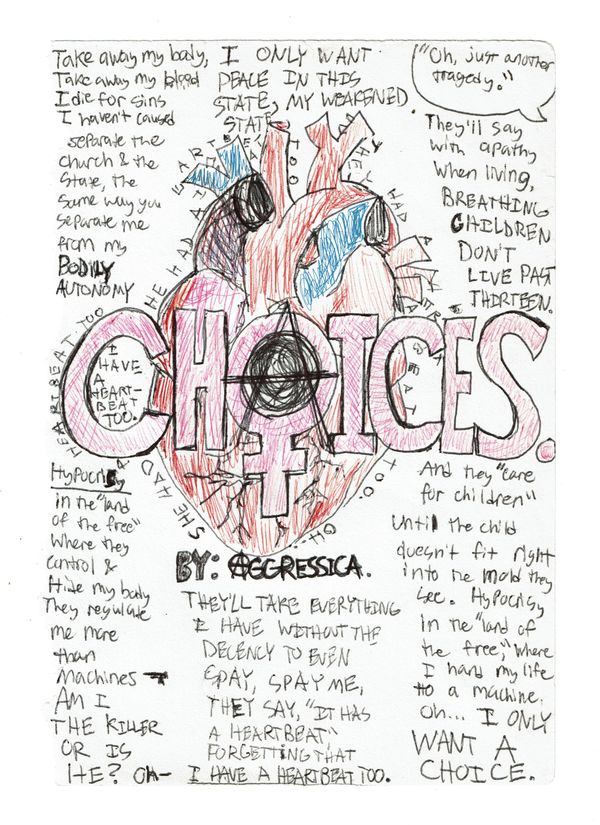 Take away my body,
Take away my blood
I die for sins
I haven't caused
separate the
church & the
State, the
same way you
separate me
from my
BODILY
AUTONOMY
I ONLY WANT
PEACE IN THIS
STATE, MY WEAKENED
STATE
"Oh, just another
tragedy."
They'll say
with apathy
when living,
BREATHING
CHILDREN
DON'T
LIVE PAST
THIRTEEN.
CHOICES.
I
HAVE
A
HEART-
BEAT
TOO.
SHE HAD A HEARTBEAT TOO
BY: AGGRESSICA.
Hypocrisy
in the "land
of the free"
where they
control &
Hide my body
They regulate
me more
than
machines
AM I
THE KILLER
OR IS
HE? OH-
THEY'LL TAKE EVERYTHING
I HAVE WITHOUT THE
DECENCY TO EVEN
SPAY, SPAY ME,
THEY SAY, "IT HAS
A HEARTBEAT,"
FORGETTING THAT
I HAVE A HEARTBEAT TOO.
And they "care
for children"
Until the child
doesn't fit right
into the mold they
see. Hypocrisy
in the "land of
the free," where
I hand my life
to a machine.
Oh... I ONLY
WANT A
CHOICE.